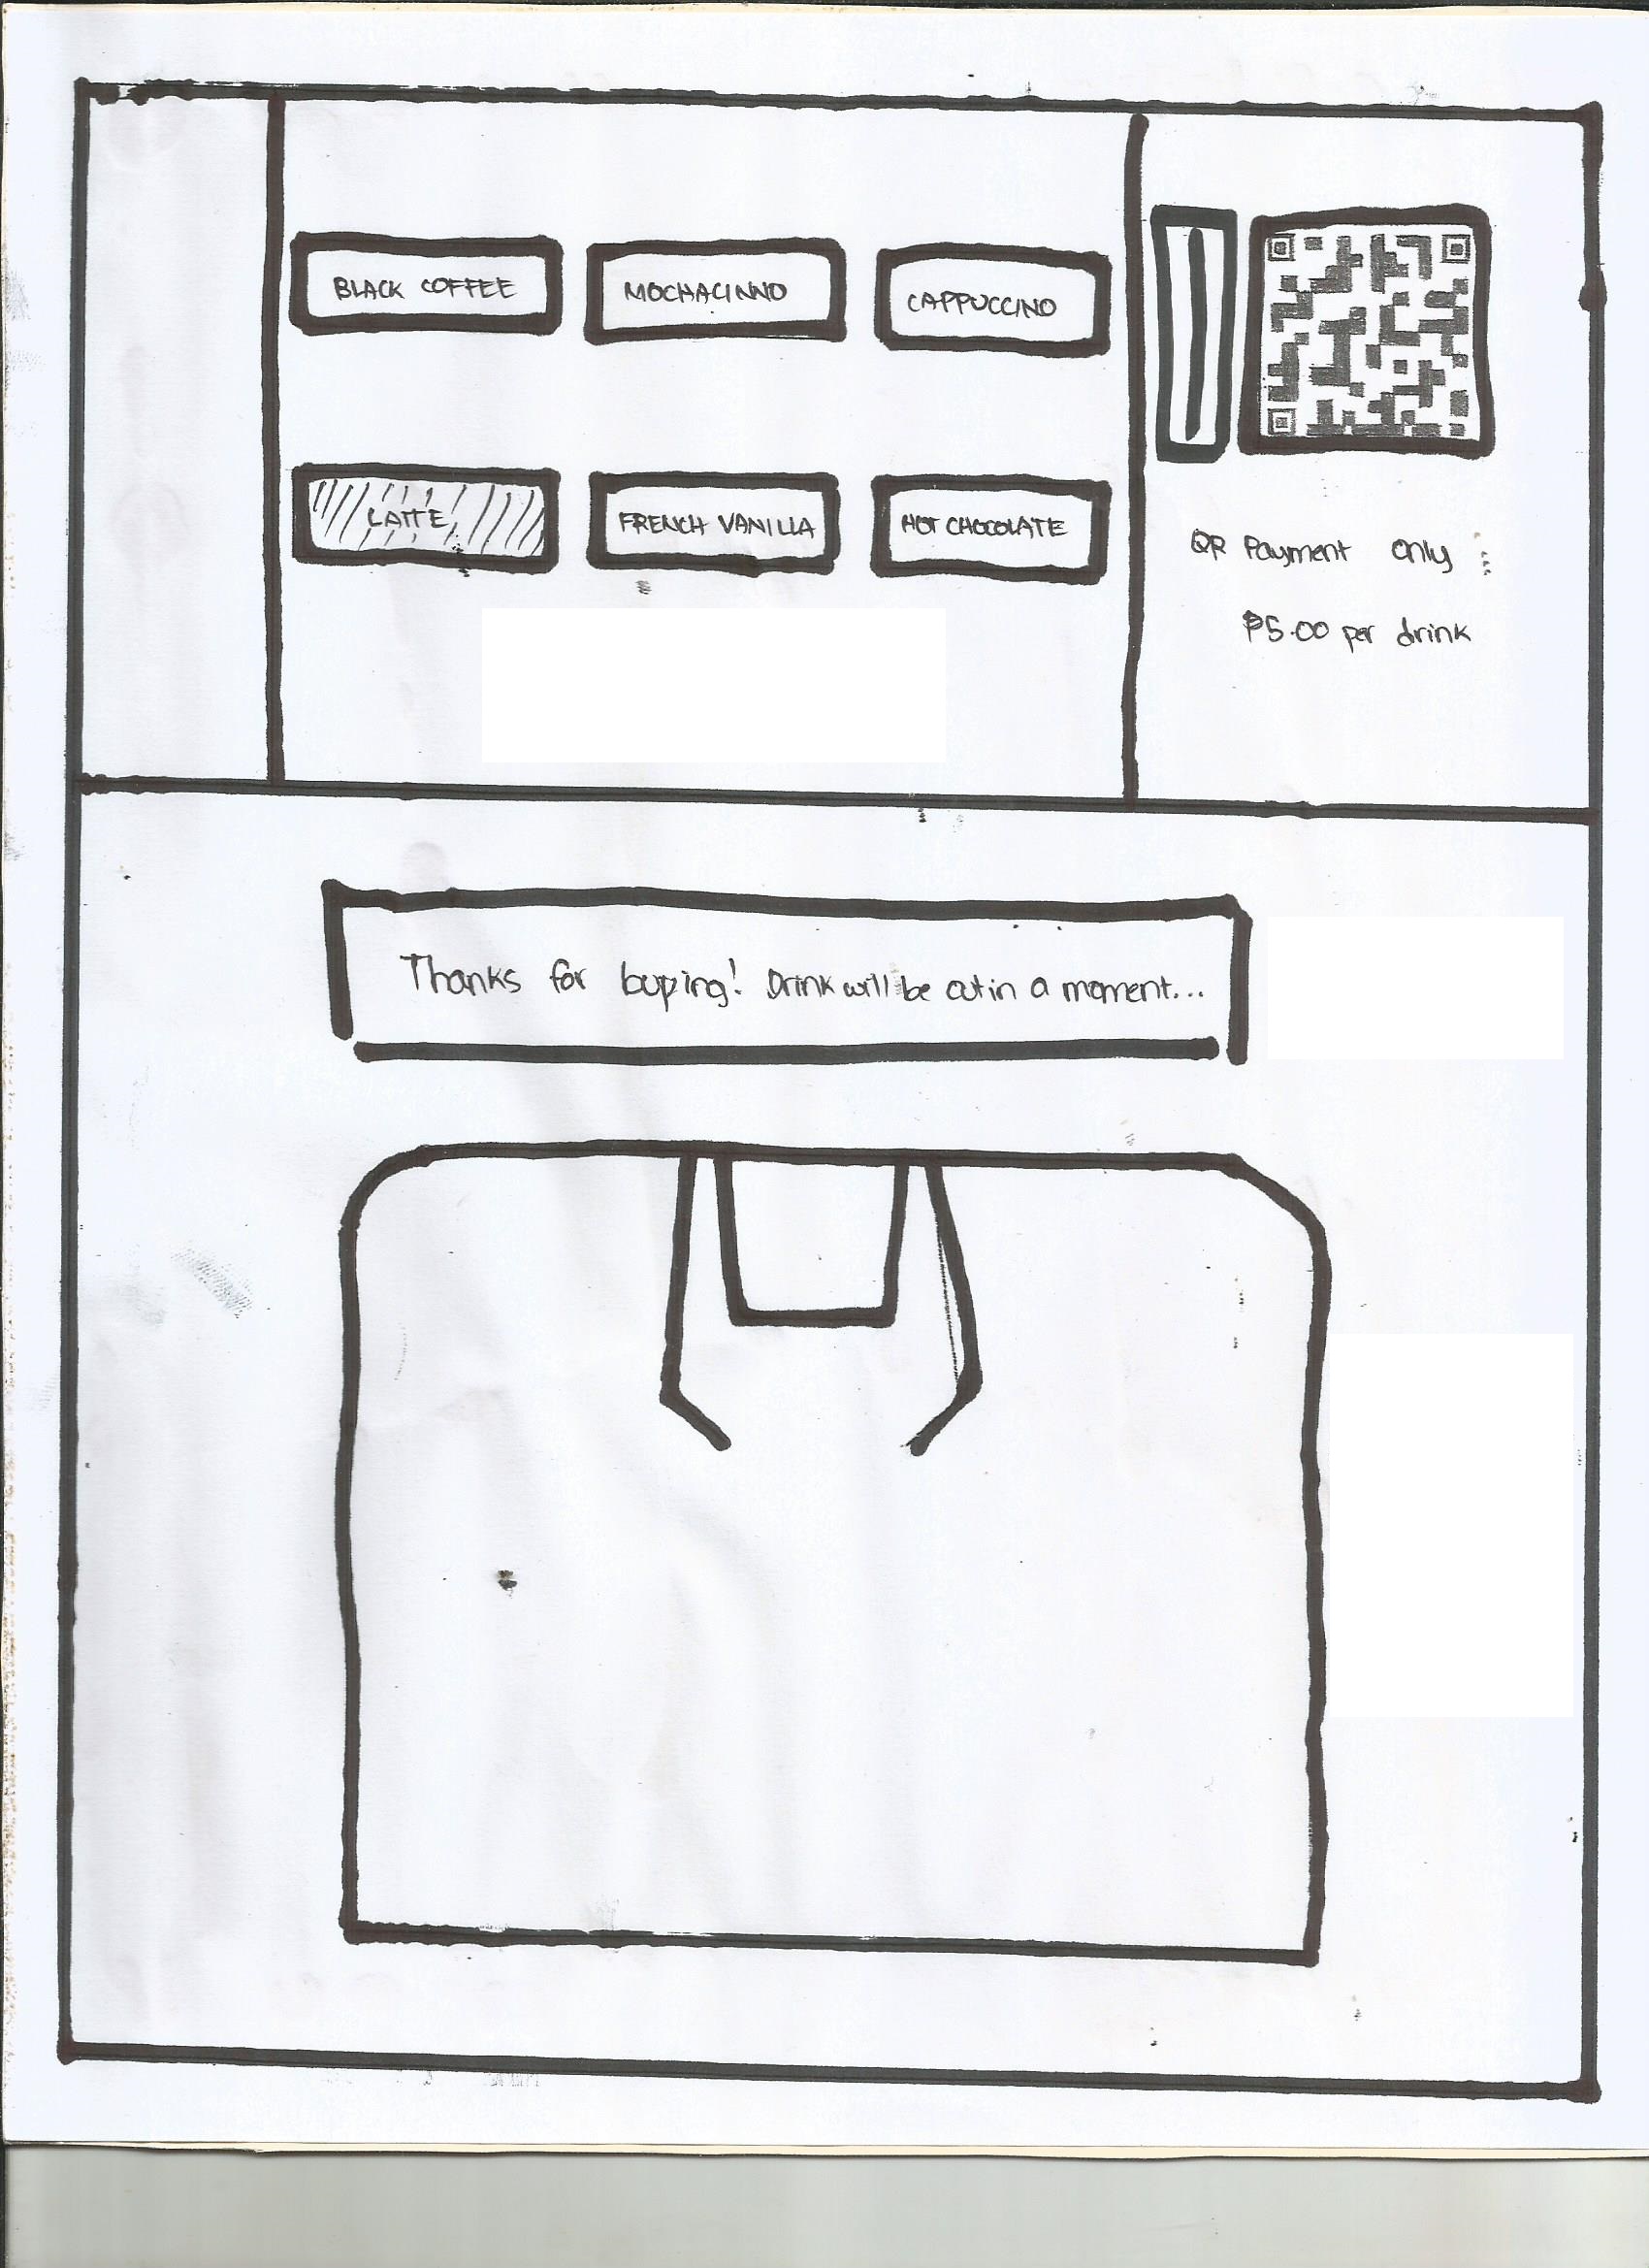 BLACK COFFEE
MOCHACINNO
CAPPUCCINO
LATTE
FRENCH VANILLA
HOT CHOCOLATE
QR Payment only
₱5.00 per drink
Thanks for buying! Drink will be out in a moment...